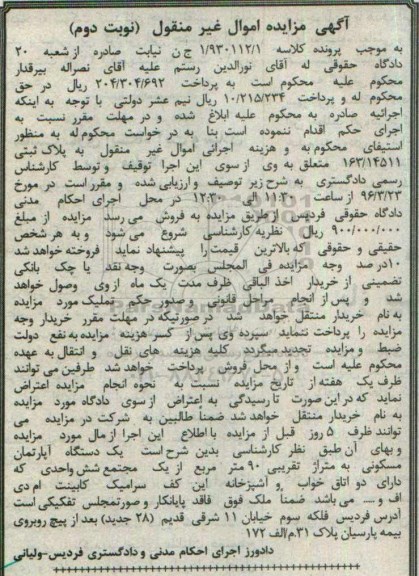 آگهی مزایده اموال غیر منقول (نوبت دوم)
به موجب پرونده کلاسه ۱/۹۳۰۱۱۲/۱ ج ن نیابت صادره از شعبه ۲۰
دادگاه حقوقی له آقای نورالدین رستم علیه آقای نصراله بیرقدار
محکوم علیه محکوم است به پرداخت ۲۰۴/۳۰۴/۶۹۲ ریال در حق
محکوم له و پرداخت ۱۰/۲۱۵/۲۳۴ ریال نیم عشر دولتی با توجه به اینکه
اجرائیه صادره به محکوم علیه ابلاغ شده و در مهلت مقرر نسبت به
اجرای حکم اقدام ننموده است بنا به در خواست محکوم له به منظور
استیفای محکوم به و هزینه اجرائی اموال غیر منقول به پلاک ثبتی
۱۶۳/۱۴۵۱۱ متعلق به وی از سوی این اجرا توقیف و توسط کارشناس
رسمی دادگستری به شرح زیر توصیف و ارزیابی شده و مقرر است در مورخ
۹۶/۳/۲۳ از ساعت ۱۱:۳۰ الی ۱۲:۳۰ در محل اجرای احکام مدنی
دادگاه حقوقی فردیس از طریق مزایده به فروش می رسد مزایده از مبلغ
۹۰۰/۰۰۰/۰۰۰ ریال نظریه کارشناسی شروع می شود و به هر شخص
حقیقی و حقوقی که بالاترین قیمت را پیشنهاد نماید فروخته خواهد شد
۱۰در صد وجه مزایده فی المجلس بصورت وجه نقد یا چک بانکی
تضمینی از خریدار اخذ الباقی ظرف مدت یک ماه از وی وصول خواهد
شد و پس از انجام مراحل قانونی و صدور حکم تملیک مورد مزایده
به نام خریدار منتقل خواهد شد در صورتیکه در مهلت مقرر خریدار وجه
مزایده را پرداخت ننماید سپرده وی پس از کسر هزینه مزایده به نفع دولت
ضبط و مزایده تجدید میگردد کلیه هزینه های نقل و انتقال به عهده
محکوم علیه است و از محل فروش پرداخت خواهد شد طرفین می توانند
ظرف یک هفته از تاریخ مزایده نسبت به نحوه انجام مزایده اعتراض
نماید که در این صورت تا رسیدگی به اعتراض از سوی دادگاه مورد مزایده
به نام خریدار منتقل خواهد شد ضمناً طالبین به شرکت در مزایده می
توانند ظرف ۵ روز قبل از مزایده با اطلاع این اجرا از مال مورد مزایده
و بهای آن طبق نظر کارشناسی بدین شرح است یک دستگاه آپارتمان
مسکونی به متراژ تقریبی ۹۰ متر مربع از یک مجتمع شش واحدی که
دارای دو اتاق خواب و آشپزخانه این کف سرامیک کابینت ام دی
اف و .... می باشد ضمناً ملک فوق فاقد پایانکار و صورتمجلس تفکیکی است
آدرس فردیس فلکه سوم خیابان ۱۱ شرقی قدیم (۲۸ جدید) بعد از پیچ روبروی
بیمه پارسیان پلاک ۳۱ م/الف ۱۷۲
دادورز اجرای احکام مدنی و دادگستری فردیس-ولیانی